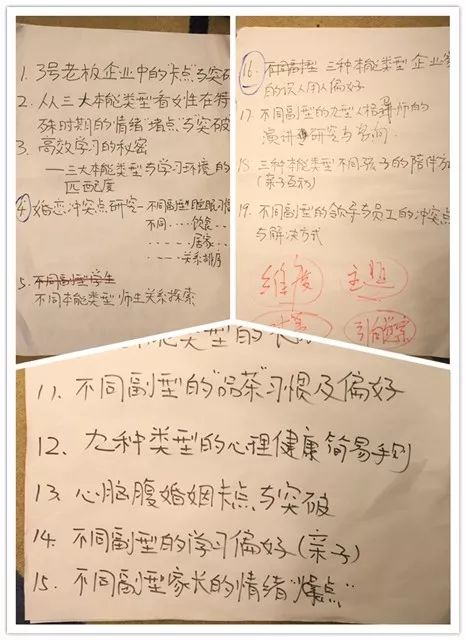 1. 3号老板企业中的"卡点"与突破
2. 从三大本能类型看女性在特
殊时期的情绪"堵点"与突破
3. 高效学习的秘密
——三大本能类型与学习环境的
匹配度
4. 婚恋冲突点研究-不同副型"睡眠习惯
不同····饮食··
····居家··
····关系排序
5. 不同副型学生
不同本能类型师生关系探索
16. 不同副型 三种本能类型 企业家
的识人用人偏好
17. 不同副型的九型人格导师的
演讲 研究与
18. 三种本能类型不同孩子的陪伴方
(亲子互动)
19. 不同副型的领导与员工的冲突点
与解决方式
维度
主题
类型的
11. 不同副型的"品茶"习惯及偏好
12、九种类型的心理健康简易手册
13. 心脑腹婚姻卡点与突破
14. 不同副型的学习偏好(亲子)
15. 不同副型家长的情绪"爆点"